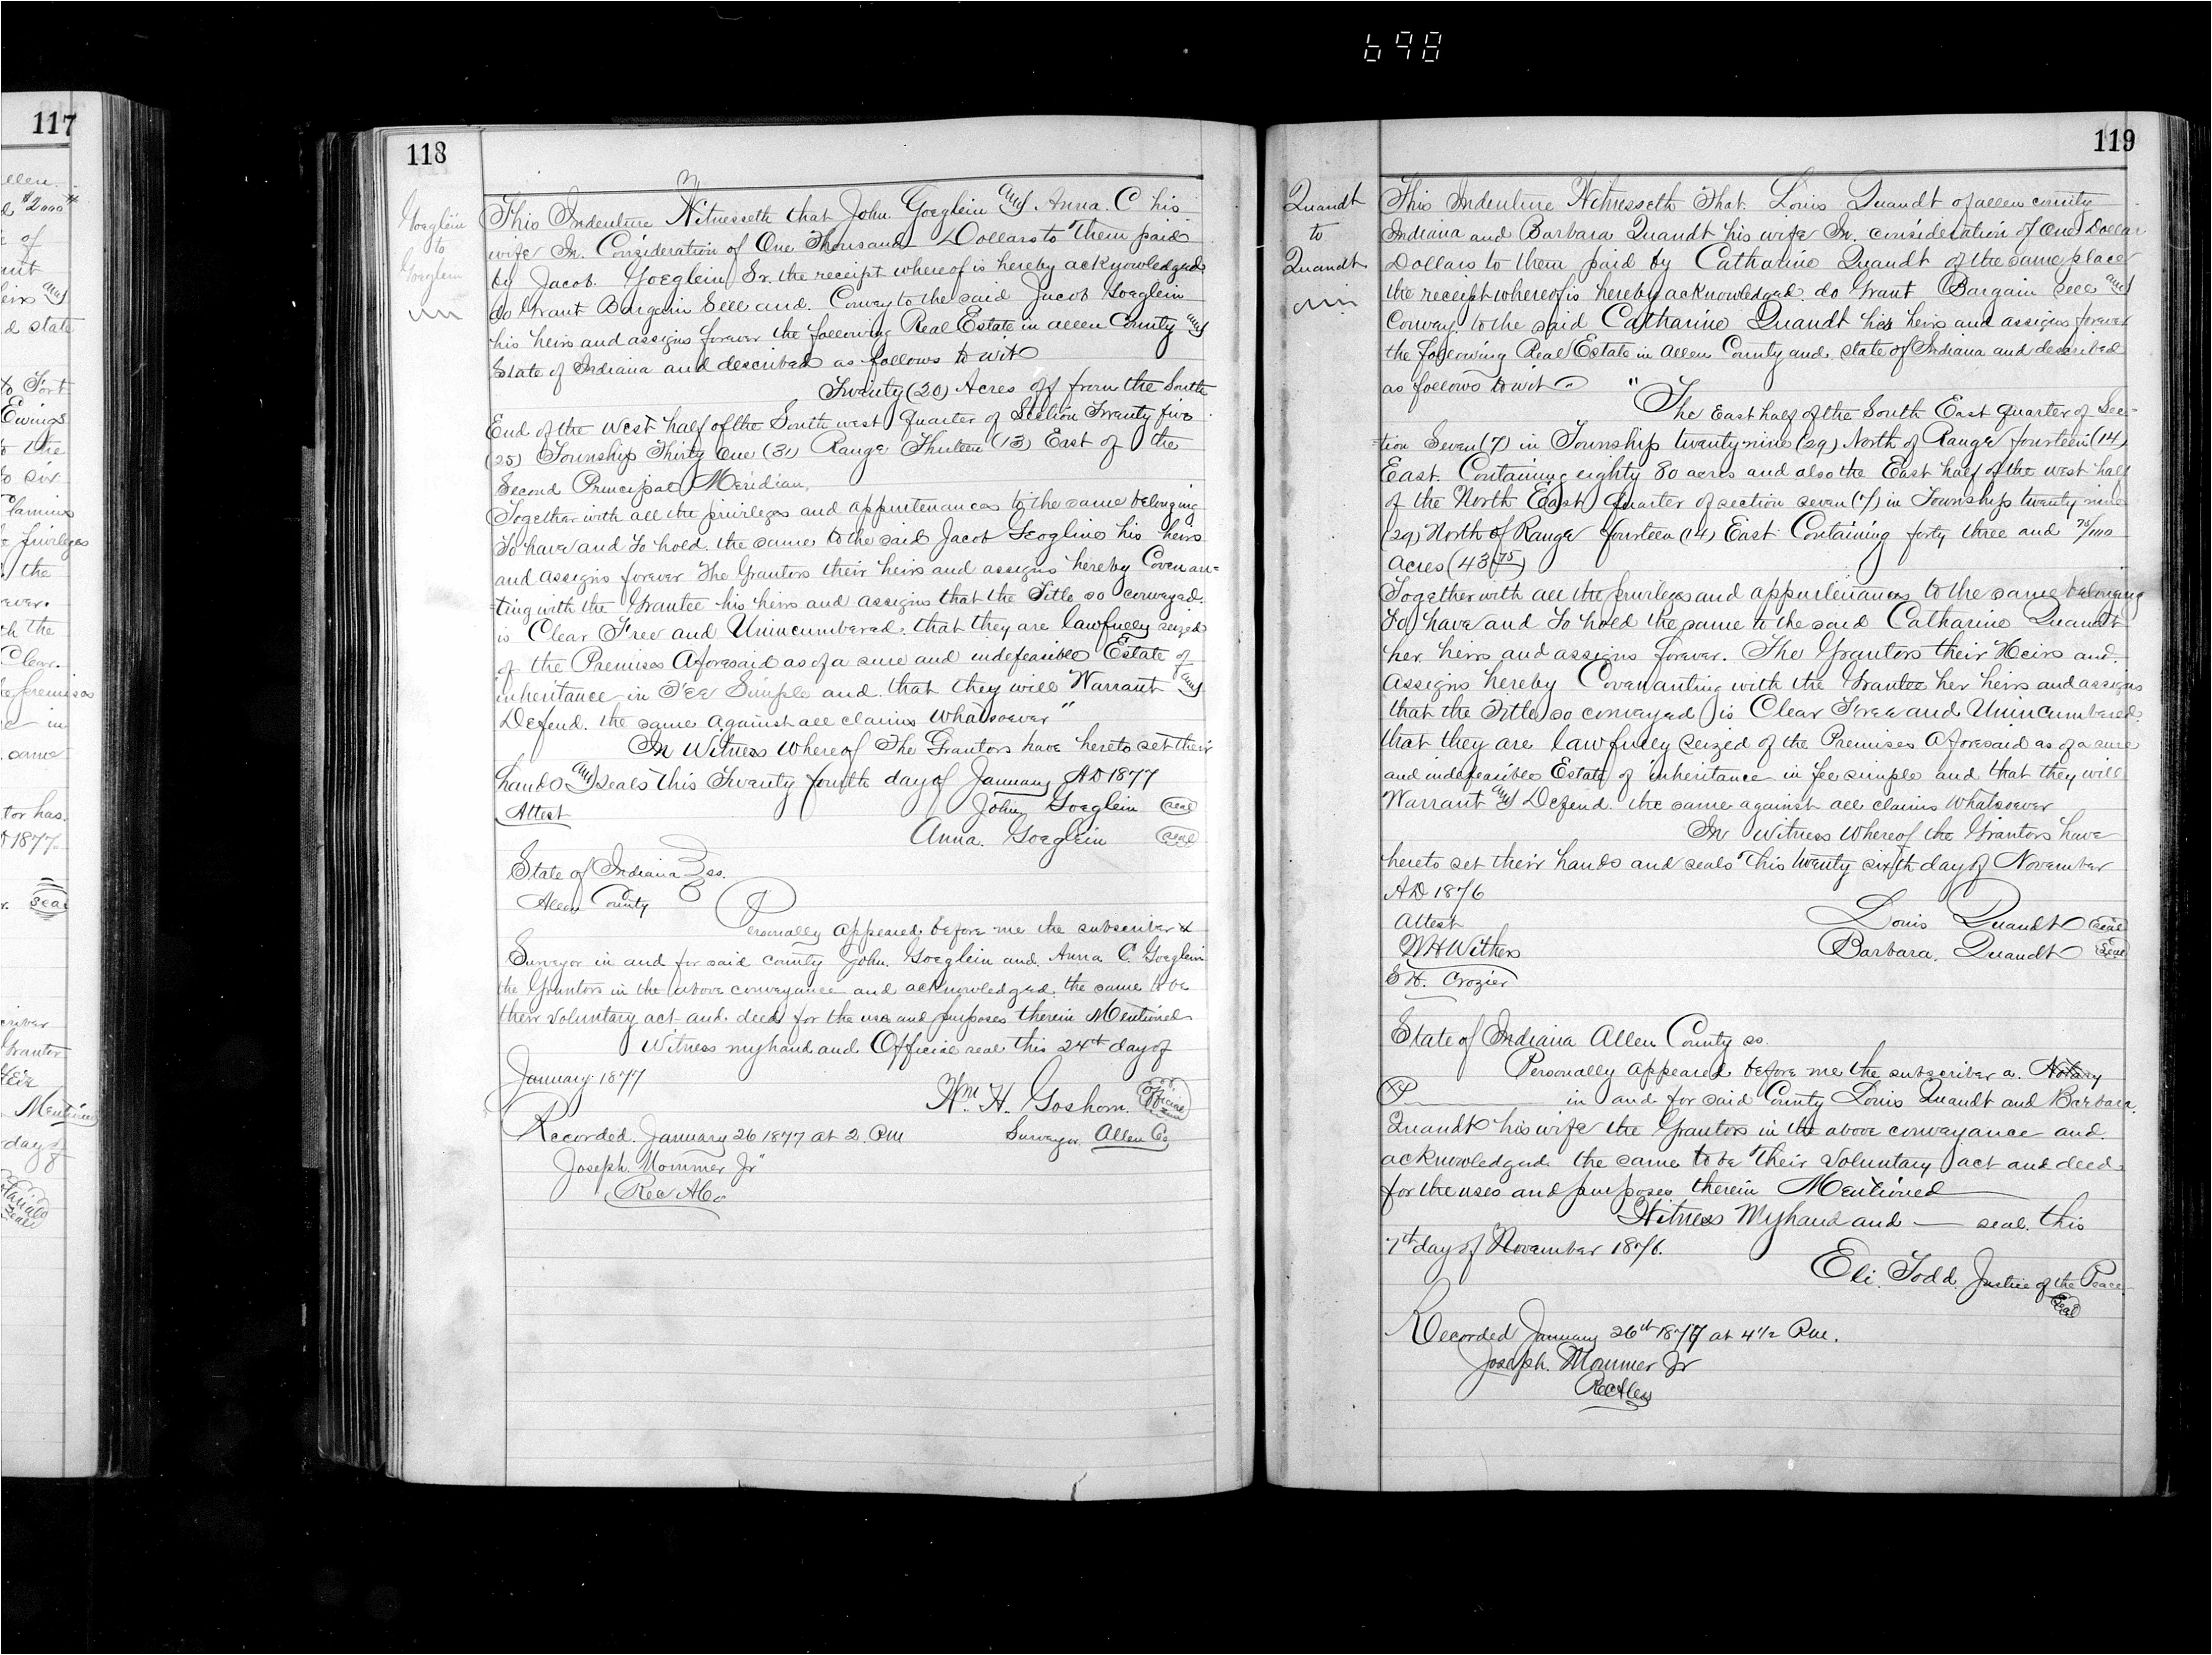 698
117
ellen
d $2000
of
heirs and
d state
to Fort
Ewings
to the
to six
the
ever.
the
Clear.
the premises
in
same
tor has
1877
Seal
Grantor
Mentioned
day of
118
Goeglein
to
Goeglein
This Indenture Witnesseth that John Goeglein and Anna. C his
wife In Consideration of One Thousand Dollars to Them paid
by Jacob Goeglein Sr. the receipt whereof is hereby acknowledged
do Grant Bargain Sell and Convey to the said Jacob Goeglein
his heirs and assigns forever the following Real Estate in Allen County and
State of Indiana and described as follows to wit
Twenty (20) Acres off from the South
End of the West half of the South west quarter of Section Twenty five
(25) Township Thirty One (31) Range Thirteen (13) East of the
Second Principal Meridian.
Together with all the privileges and appurtenances to the same belonging
To have and To hold the same to the said Jacob Geogline his heirs
and assigns forever The Grantors their heirs and assigns hereby Covenan=
=ting with the Grantee his heirs and assigns that the Title so conveyed
is Clear Free and Unincumbered. that they are lawfully seized
of the Premises Aforesaid as of a sure and indefeasible Estate of
inheritance in Fee Simple and that they will Warrant and
Defend. the same against all claims whatsoever"
In Witness Whereof The Grantors have hereto set their
hands and seals this Twenty fourth day of January AD 1877
Attest John Goeglein seal
Anna. Goeglein seal
State of Indiana } ss.
Allen County
Personally appeared before me the subscriber a
Surveyor in and for said county John. Goeglein and Anna C. Goeglein
the Grantors in the above conveyance and acknowledged the same to be
their voluntary act and deed for the uses and purposes therein Mentioned
Witness my hand and Official seal this 24th day of
January 1877
Wm. H. Goshorn. Official Seal
Recorded January 26 1877 at 2. PM Surveyor Allen Co
Joseph Mommer Jr
Rec A Co
119
Quandt
to
Quandt
This Indenture Witnesseth That Louis Quandt of allen county
Indiana and Barbara Quandt his wife In consideration of One Dollar
Dollars to them paid by Catharine Quandt of the same place
the receipt whereof is hereby acknowledged do Grant Bargain Sell and
Convey to the said Catharine Quandt her heirs and assigns forever
the following Real Estate in Allen County and state of Indiana and described
as follows to wit "The East half of the South East quarter of Sec=
=tion Seven (7) in Township twenty nine (29) North of Range fourteen (14)
East. Containing eighty 80 acres and also the East half of the west half
of the North East quarter of section seven (7) in Township twenty nine
(29) North of Range fourteen (14) East Containing forty three and 75/100
acres (43 75)
Together with all the privileges and appurtenances to the same belonging
To have and To hold the same to the said Catharine Quandt
her heirs and assigns forever. The Grantors their Heirs and
Assigns hereby Covenanting with the Grantee her heirs and assigns
that the Title so conveyed is Clear Free and Unincumbered.
that they are lawfully seized of the Premises Aforesaid as of a sure
and indefeasible Estate of inheritance in fee simple and that they will
Warrant and Defend. the same against all claims Whatsoever
In Witness Whereof the Grantors have
hereto set their hands and seals This twenty sixth day of November
AD 1876
Attest Louis Quandt seal
W H Withers Barbara. Quandt Seal
S H. Crozier
State of Indiana Allen County ss.
Personally appeared before me the subscriber a. Notary
P in and for said County Louis Quandt and Barbara
Quandt his wife the Grantors in the above conveyance and
acknowledged the same to be Their voluntary act and deed
for the uses and purposes therein Mentioned
Witness My hand and seal. this
7th day of November 1876.
Eli. Todd Justice of the Peace
Seal
Recorded January 26th 1877 at 4 1/2 P.M.
Joseph. Mommer Jr
Rec A Co